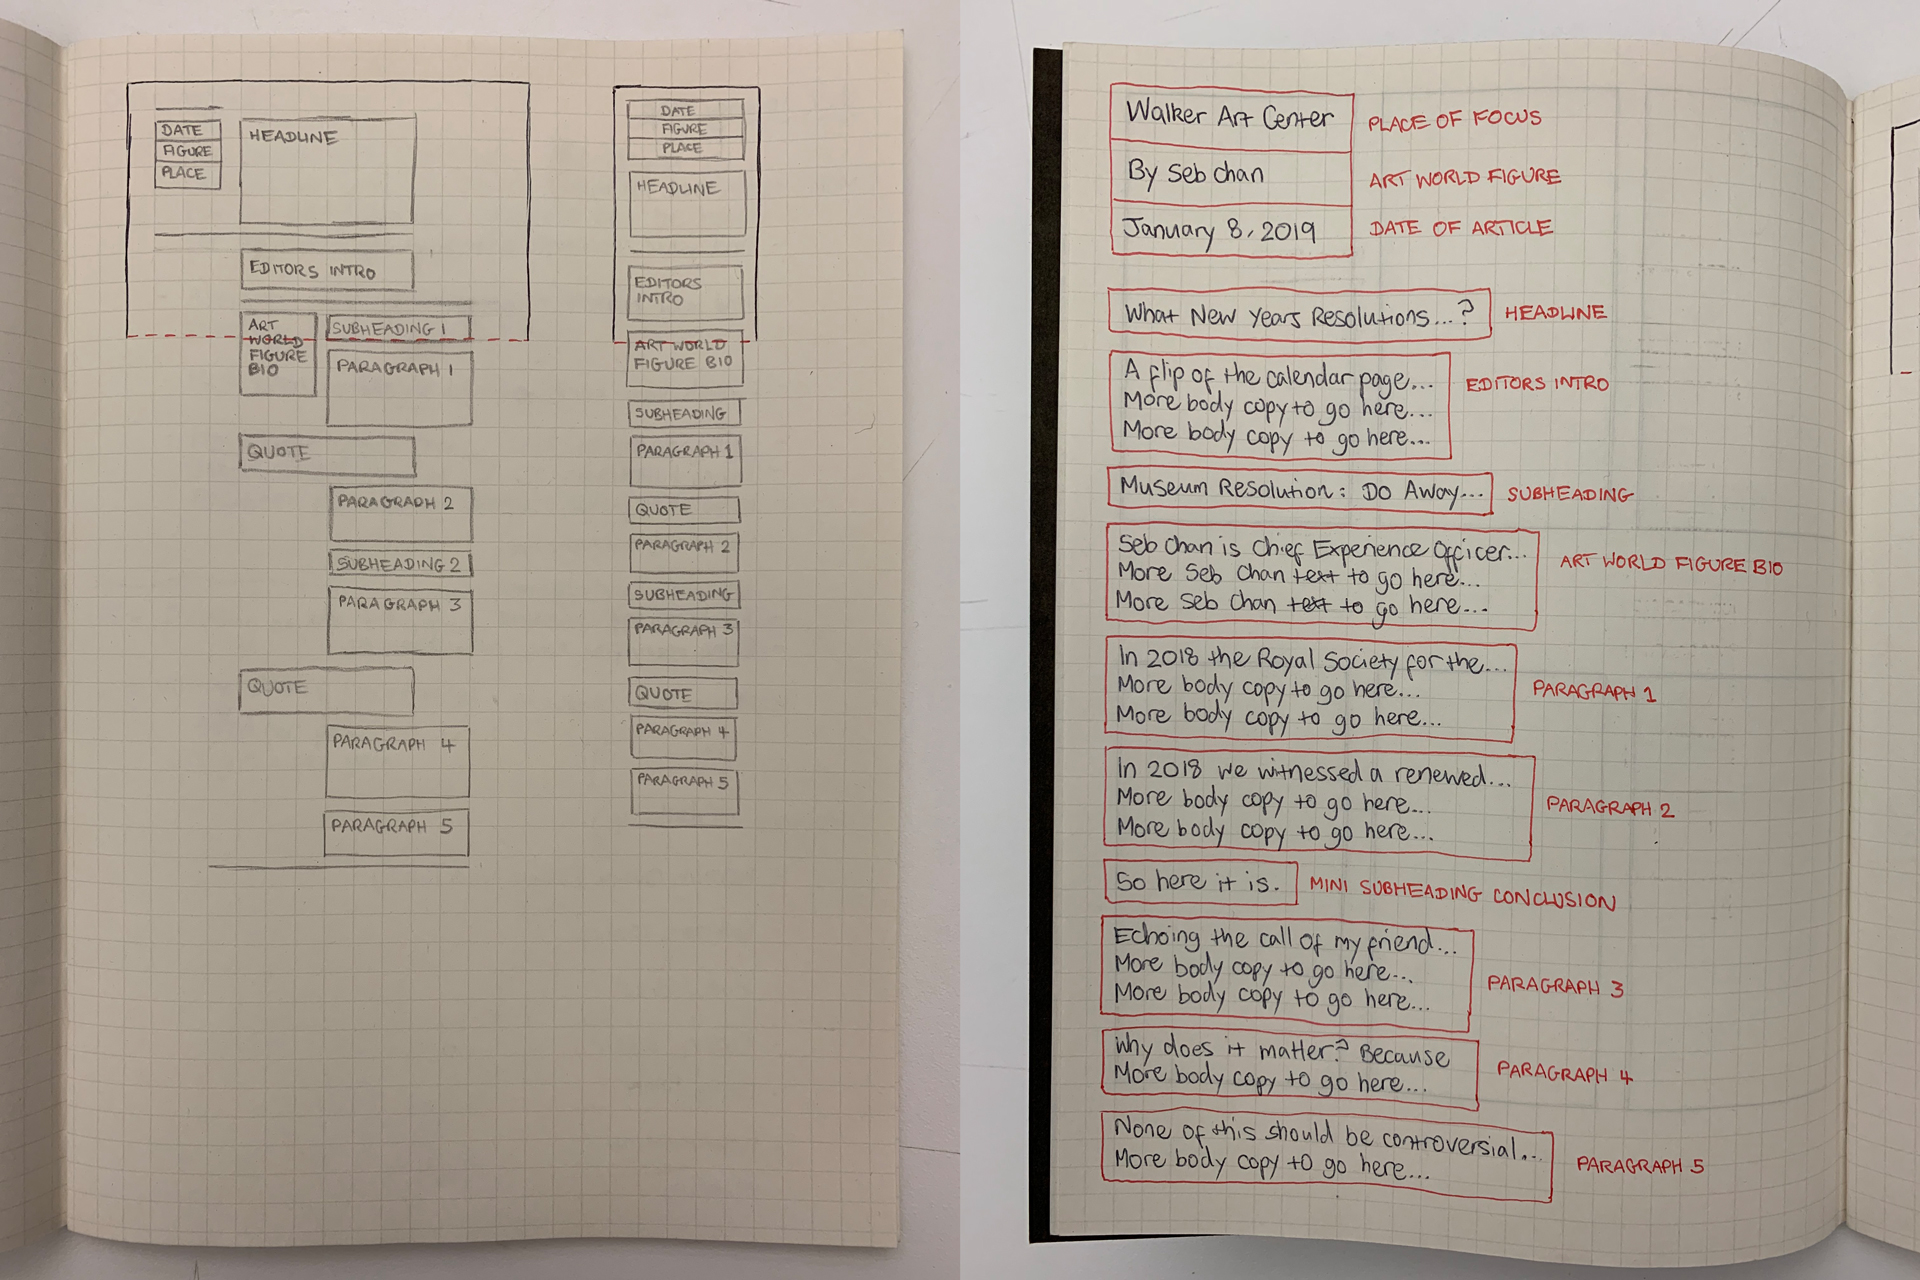 DATE
FIGURE
PLACE
HEADLINE
EDITORS INTRO
ART
WORLD
FIGURE
BIO
SUBHEADING 1
PARAGRAPH 1
QUOTE
PARAGRAPH 2
SUBHEADING 2
PARAGRAPH 3
QUOTE
PARAGRAPH 4
PARAGRAPH 5
DATE
FIGURE
PLACE
HEADLINE
EDITORS
INTRO
ART WORLD
FIGURE BIO
SUBHEADING
PARAGRAPH 1
QUOTE
PARAGRAPH 2
SUBHEADING
PARAGRAPH 3
QUOTE
PARAGRAPH 4
PARAGRAPH 5
Walker Art Center
PLACE OF FOCUS
By Seb chan
ART WORLD FIGURE
January 8, 2019
DATE OF ARTICLE
What New Years Resolutions...?
HEADLINE
A flip of the calendar page...
More body copy to go here...
More body copy to go here...
EDITORS INTRO
Museum Resolution: Do Away...
SUBHEADING
Seb Chan is Chief Experience Officer...
More Seb Chan text to go here...
More Seb Chan text to go here...
ART WORLD FIGURE BIO
In 2018 the Royal Society for the...
More body copy to go here...
More body copy to go here...
PARAGRAPH 1
In 2018 we witnessed a renewed...
More body copy to go here...
More body copy to go here...
PARAGRAPH 2
So here it is.
MINI SUBHEADING CONCLUSION
Echoing the call of my friend...
More body copy to go here...
More body copy to go here...
PARAGRAPH 3
Why does it matter? Because
More body copy to go here...
PARAGRAPH 4
None of this should be controversial...
More body copy to go here...
PARAGRAPH 5